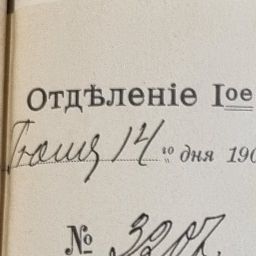 Отдѣленіе Iое
Іюля 14 го дня 190
№ 3207.